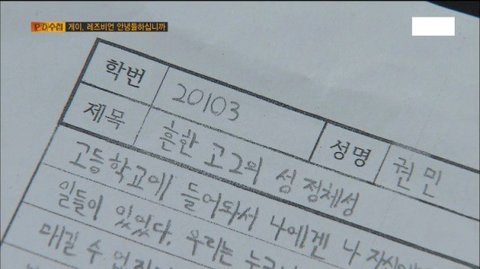 PD수첩 게이, 레즈비언 안녕들하십니까
학번 20103
제목 흔한 고2의 성 정체성 성명 권민
고등학교에 들어와서 나에겐 나 자신
일들이 있었다. 우리는
매길 수